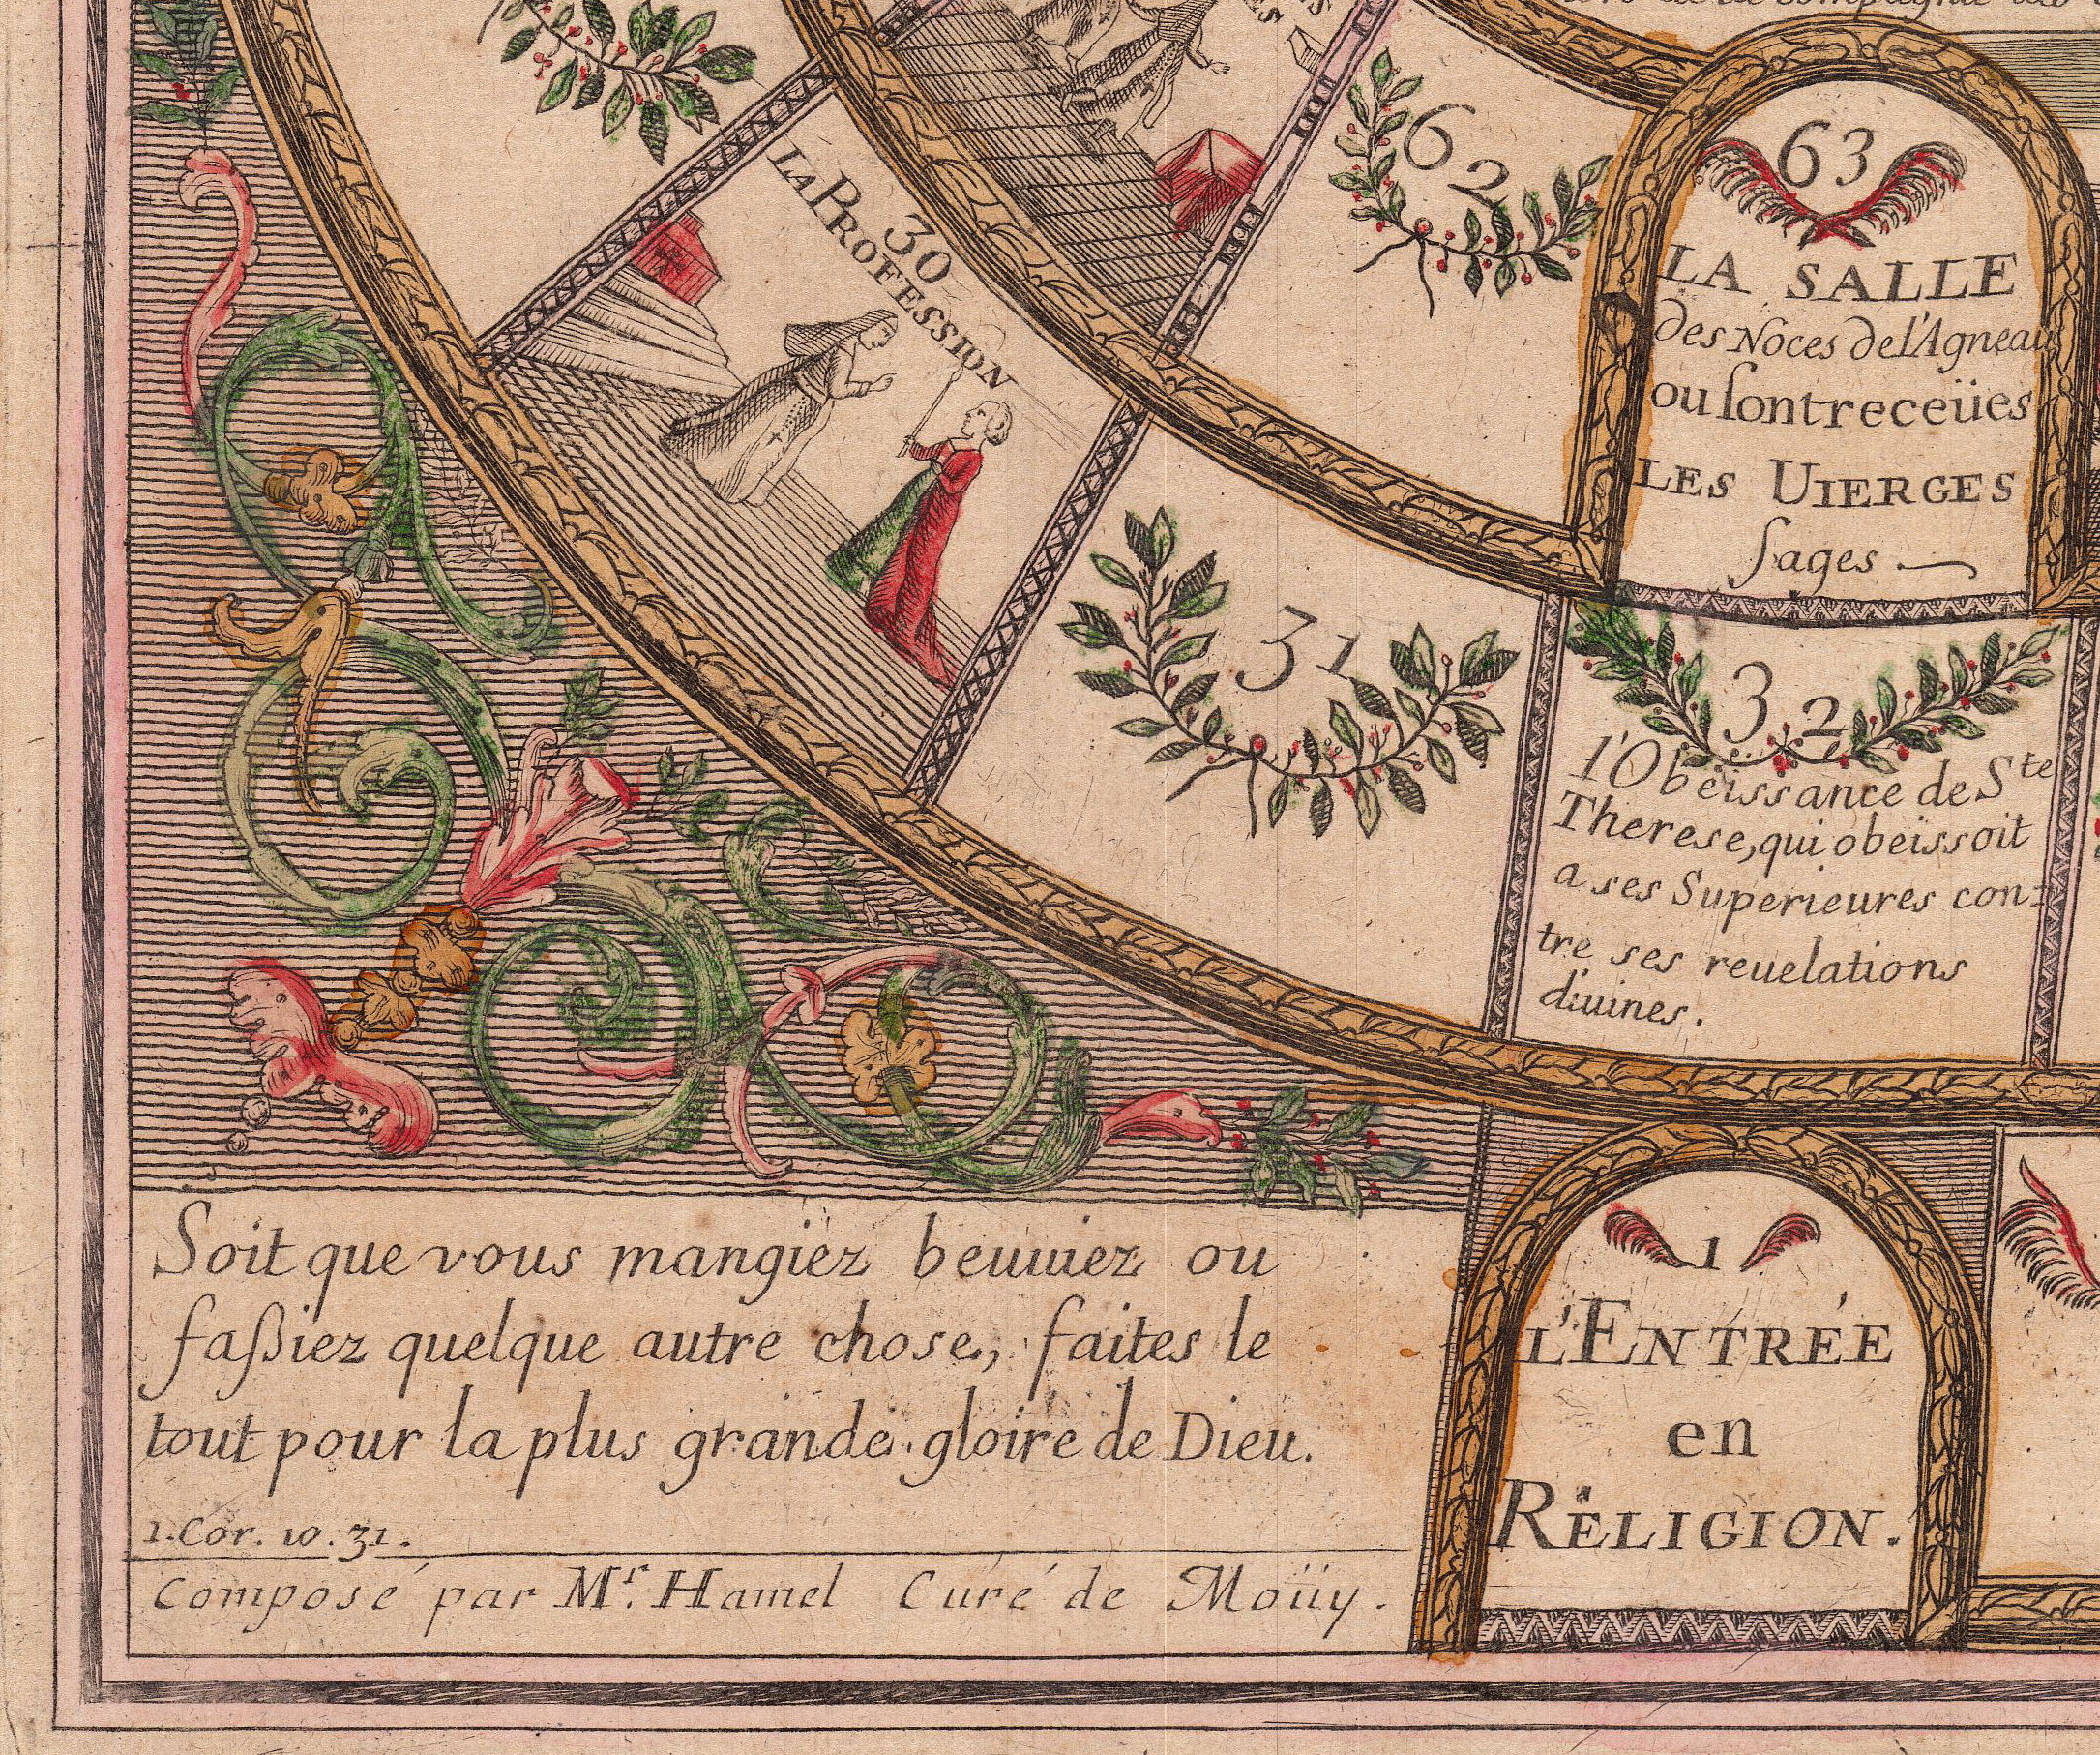 62
63
LA SALLE
des Noces de l'Agneau
ou ſont receües
LES UIERGES
ſages
30
LA PROFESSION
31
32
l'Obeissance de Ste
Therese, qui obeissoit
a ses Superieures con=
tre ses reuelations
diuines.
1
L'ENTRÉE
en
RELIGION.
Soit que vous mangiez beuuiez ou
faßiez quelque autre chose, faites le
tout pour la plus grande gloire de Dieu.
1. Cor. 10. 31.
Composé par Mr. Hamel Curé de Moüy.